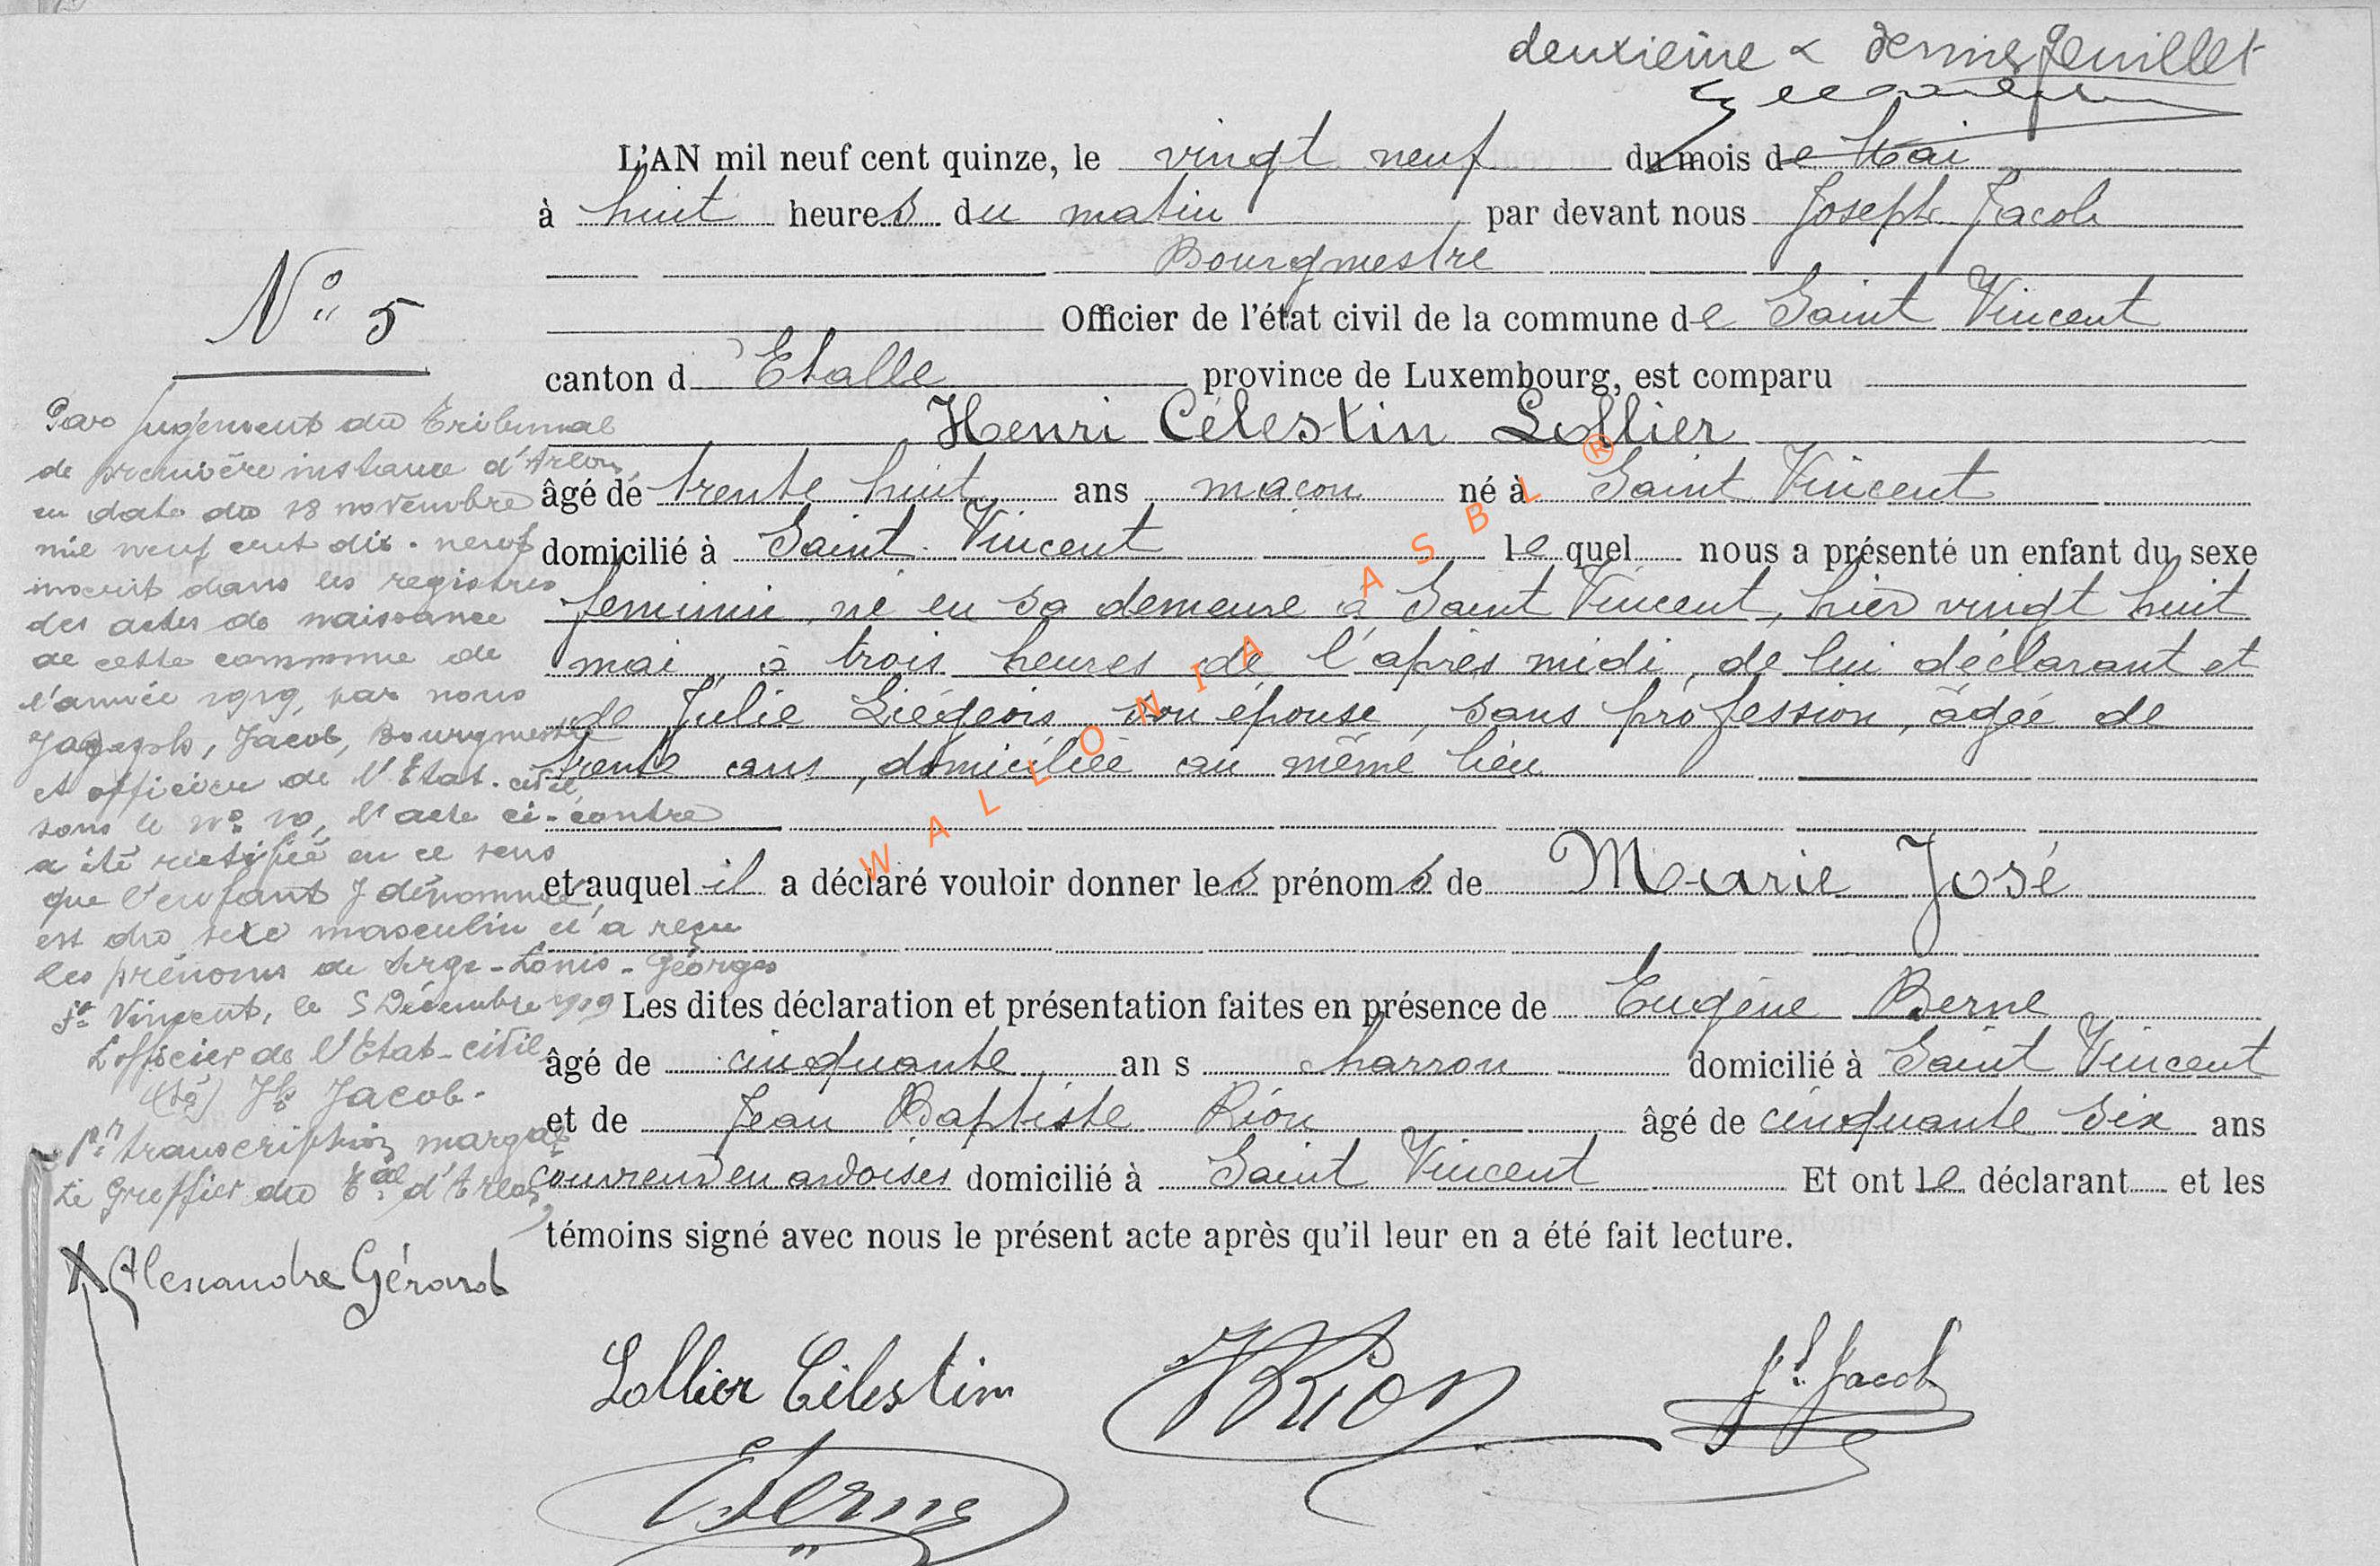 deuxième & dernier feuillet
L'AN mil neuf cent quinze, le vingt neuf du mois de Mai
à huit heures du matin par devant nous Joseph Jacob
Bourgmestre
Officier de l'état civil de la commune de Saint Vincent
canton d'Etalle province de Luxembourg, est comparu
Henri Célestin Lollier
âgé de trente huit ans maçon né à Saint Vincent
domicilié à Saint Vincent le quel nous a présenté un enfant du sexe
feminin, né en sa demeure à Saint Vincent, hier vingt huit
mai, à trois heures de l'après midi, de lui déclarant et
de Julie Liégeois son épouse, sans profession, âgée de
trente ans, domiciliée au même lieu
et auquel il a déclaré vouloir donner les prénoms de Marie José
Les dites déclaration et présentation faites en présence de Eugène Berne
âgé de cinquante ans charron domicilié à Saint Vincent
et de Jean Baptiste Rion âgé de cinquante six ans
couvreur en ardoises domicilié à Saint Vincent Et ont le déclarant et les
témoins signé avec nous le présent acte après qu'il leur en a été fait lecture.
Lollier Célestin
JBRion
Jh Jacob
EBerne
N° 5
Par jugement du Tribunal
de première instance d'Arlon,
en date du 18 novembre
mil neuf cent dix-neuf
inscrit dans les registres
des actes de naissance
de cette commune de
l'année 1919, par nous
Joseph, Jacob, Bourgmestre
et officier de l'Etat-civil,
sous le N° 10, l'acte ci-contre
a été rectifié en ce sens
que l'enfant y dénommé,
est du sexe masculin et a reçu
les prénoms de Serge-Louis-Georges
St Vincent, le 5 Décembre 1919
L'officier de l'Etat-civil
(sé) Jh Jacob.
Pr transcription margale
Le Greffier du Tal d'Arlon,
Alexandre Gérard
WALLONIA ASBL ®